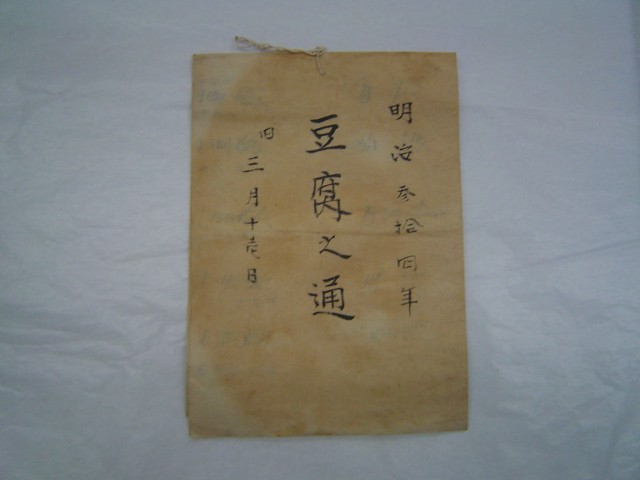 明治参拾四年
豆腐之通
旧三月十壱日